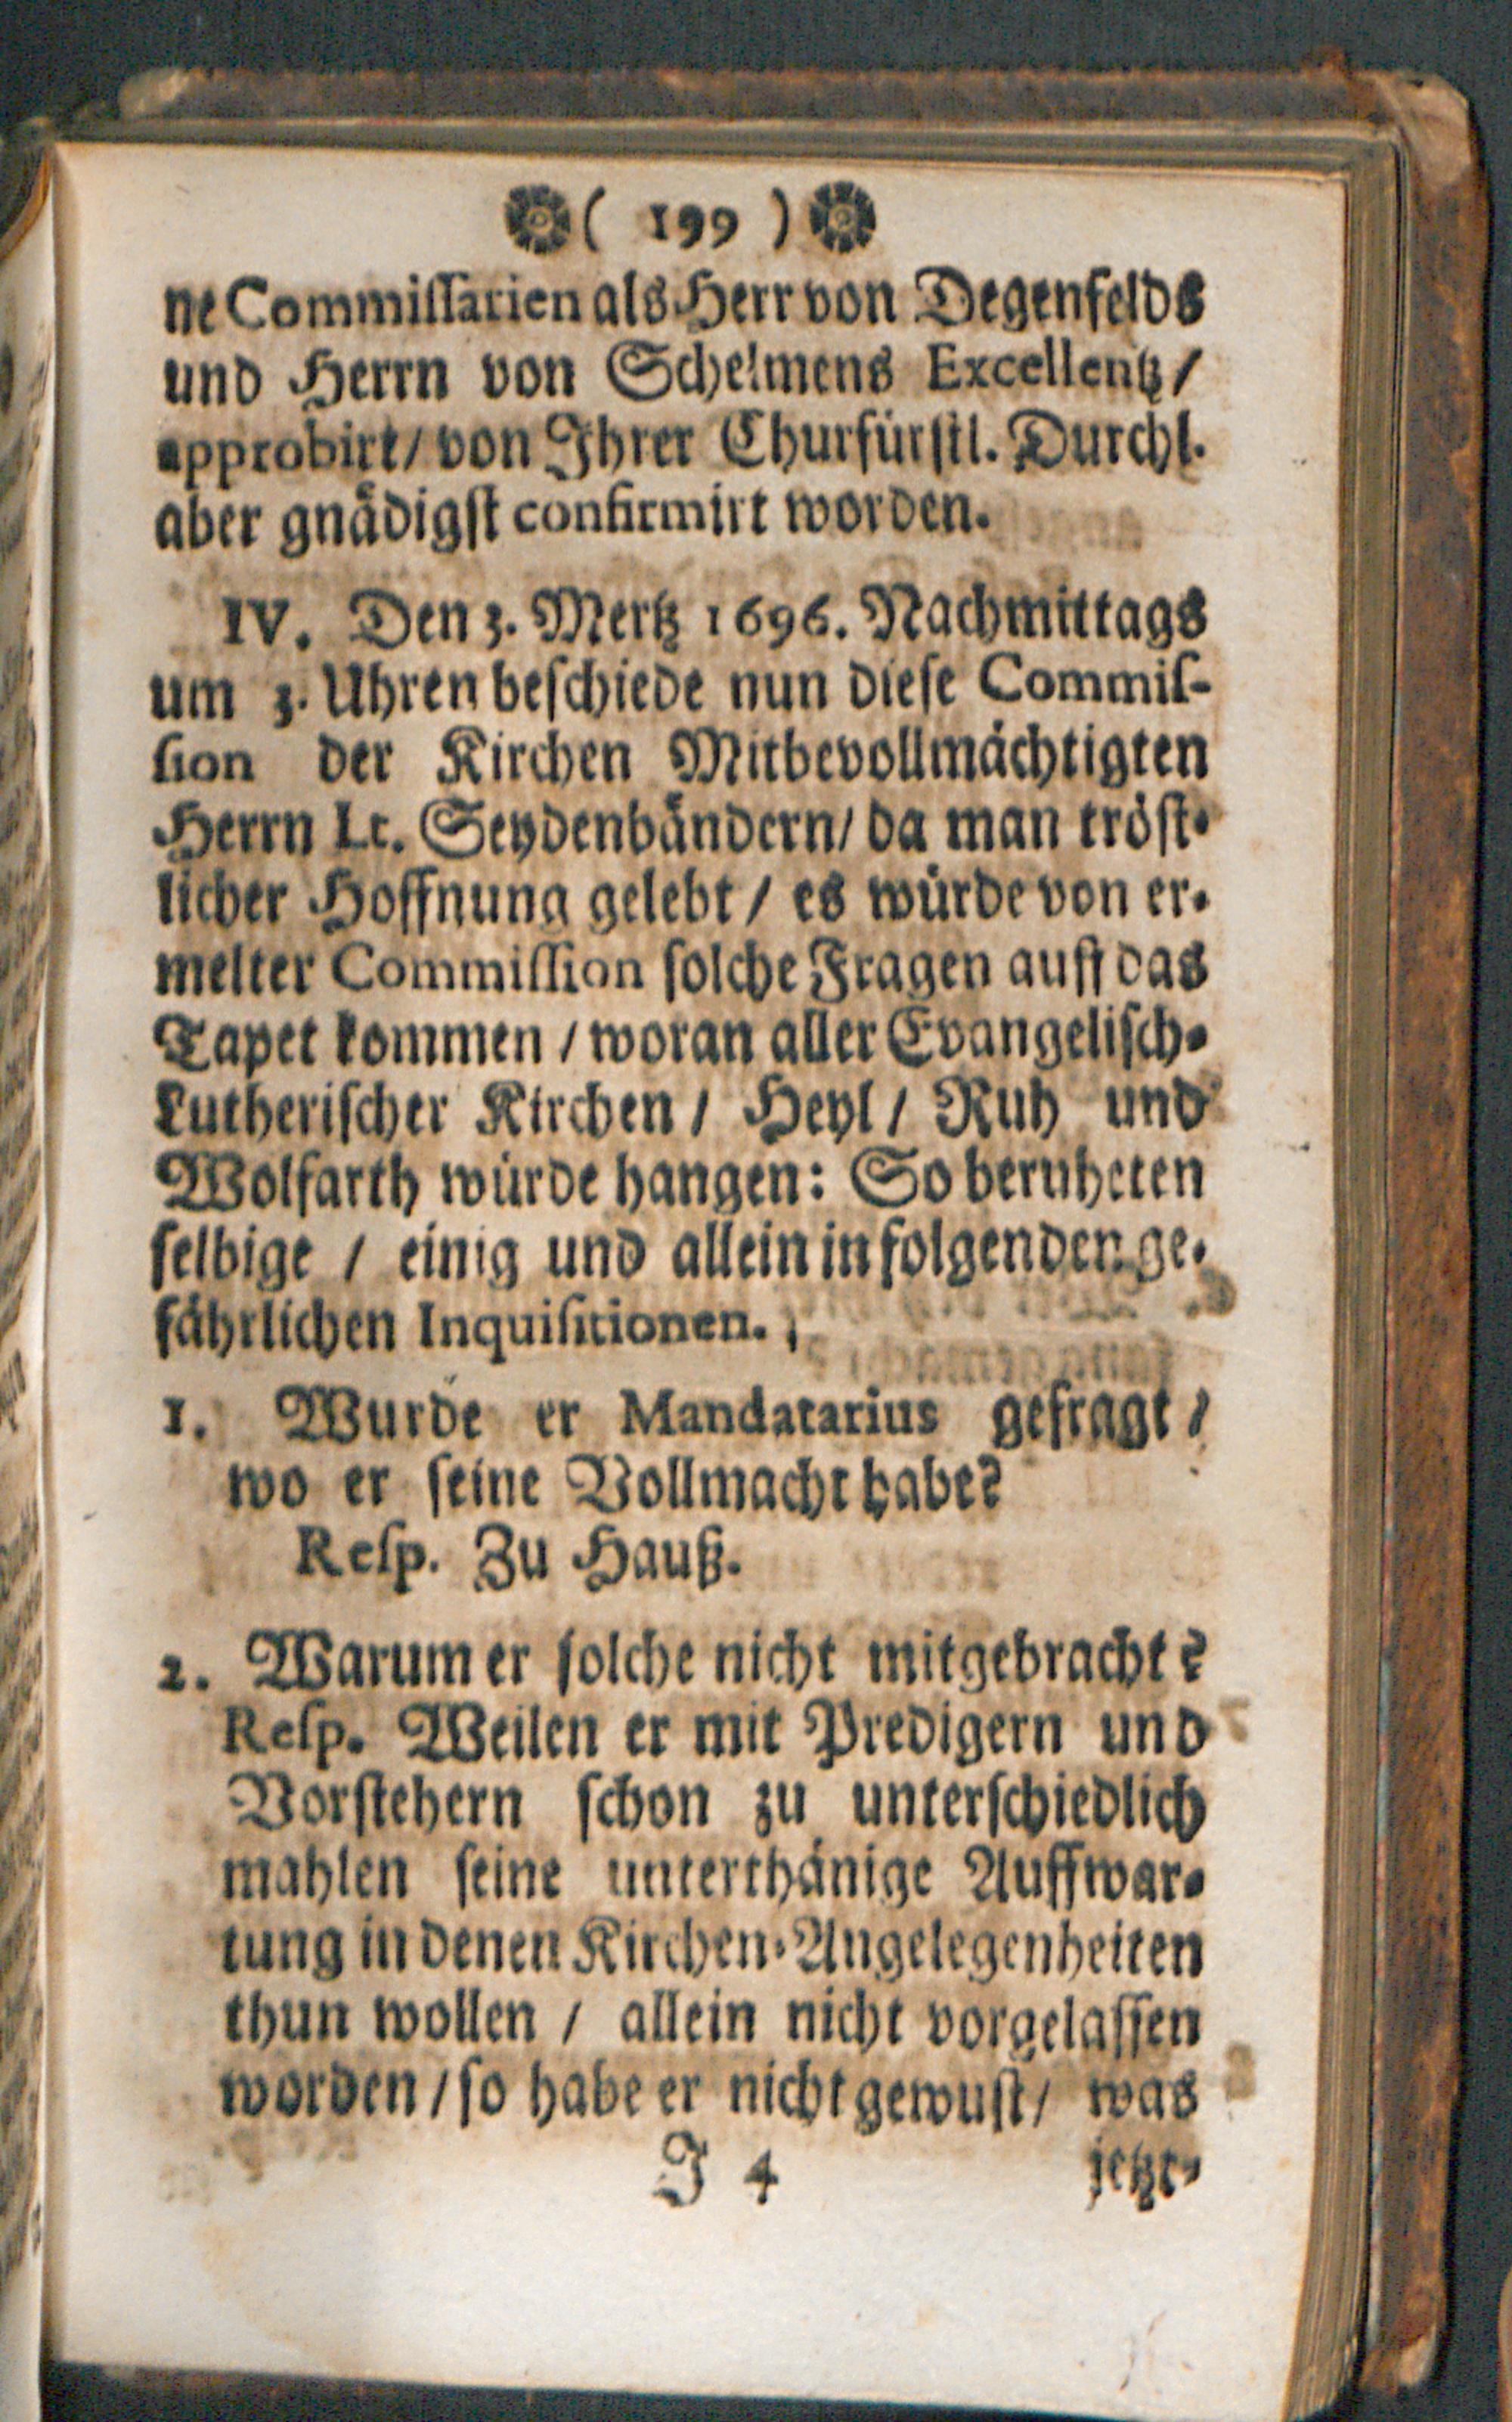 ( 199 )
ne Commiſſarien als Herr von Degenfelds
und Herrn von Schelmens Excellentz /
approbirt / von Ihrer Churfürſtl. Durchl.
aber gnädigſt confirmirt worden.
IV. Den 3. Mertz 1696. Nachmittags
um 3. Uhren beſchiede nun dieſe Commiſ-
ſion der Kirchen Mitbevollmächtigten
Herrn Lt. Seydenbändern / da man tröſt-
licher Hoffnung gelebt / es würde von er-
melter Commiſſion ſolche Fragen auff das
Tapet kommen / woran aller Evangeliſch-
Lutheriſcher Kirchen / Heyl / Ruh und
Wolfarth würde hangen: So beruheten
ſelbige / einig und allein in folgenden ge-
fährlichen Inquiſitionen.
1. Wurde er Mandatarius gefragt /
wo er ſeine Vollmacht habe?
Reſp. Zu Hauß.
2. Warum er ſolche nicht mitgebracht?
Reſp. Weilen er mit Predigern und
Vorſtehern ſchon zu unterſchiedlich
mahlen ſeine unterthänige Auffwar-
tung in denen Kirchen-Angelegenheiten
thun wollen / allein nicht vorgelaſſen
worden / ſo habe er nicht gewuſt / was
J 4 jetzt-